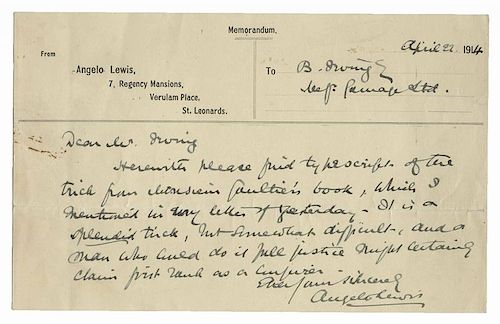 Memorandum.
April 22. 1914
From
Angelo Lewis,
7, Regency Mansions,
Verulam Place,
St. Leonards.
To
B. Irving
Messrs. Gamage Ltd.
Dear Mr. Irving
Herewith please find typescript of the
trick from Monsieur Gaultier's book, which I
mentioned in my letter of yesterday. It is a
splendid trick, but somewhat difficult, and a
man who could do it full justice might certainly
claim first rank as a conjurer.
Ever yours sincerely
Angelo Lewis